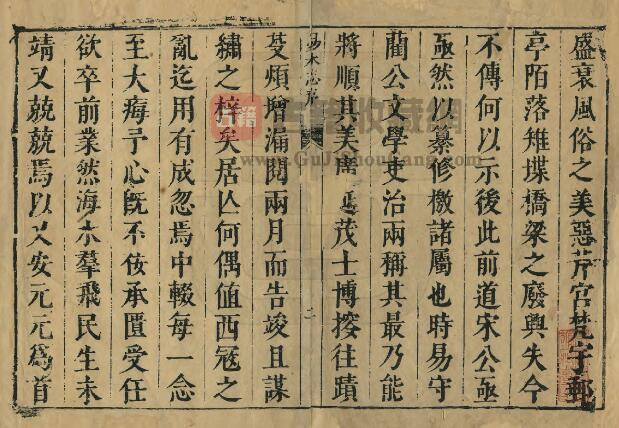 盛衰風俗之美惡芹宮梵宇郵
亭陌落雉堞橋梁之廢興失今
不傳何以示後此前道宋公亟
亟然以纂修檄諸屬也時易守
藺公文學吏治兩稱其最乃能
將順其美廣延茂士博搜往蹟
易水志序
二
芟煩增漏閱兩月而告竣且謀
繡之梓矣居亾何偶值西寇之
亂迄用有成忽焉中輟每一念
至大痗予心旣不佞承匱受任
欲卒前業然海水羣飛民生未
靖又兢兢焉以乂安元元爲首
古籍收藏網
www.GuJiShouCang.com